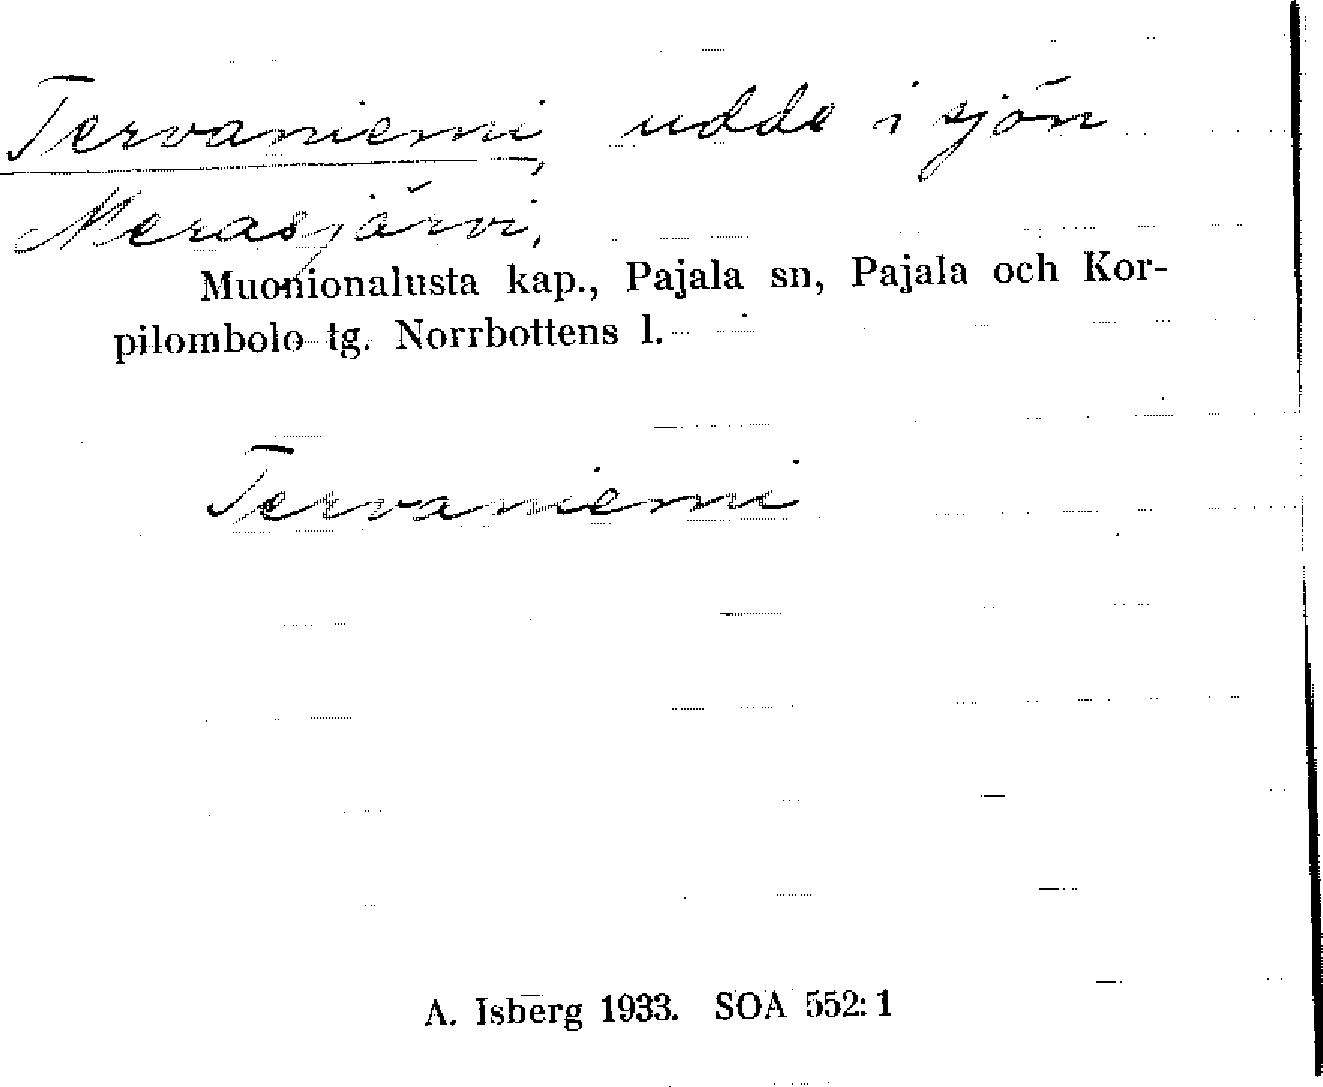 Tervaniemi, udde i sjön
Merasjärvi,
Muonionalusta kap., Pajala sn, Pajala och Kor-
pilombolo tg. Norrbottens l.
Tervaniemi
A. Isberg 1933. SOA 552:1